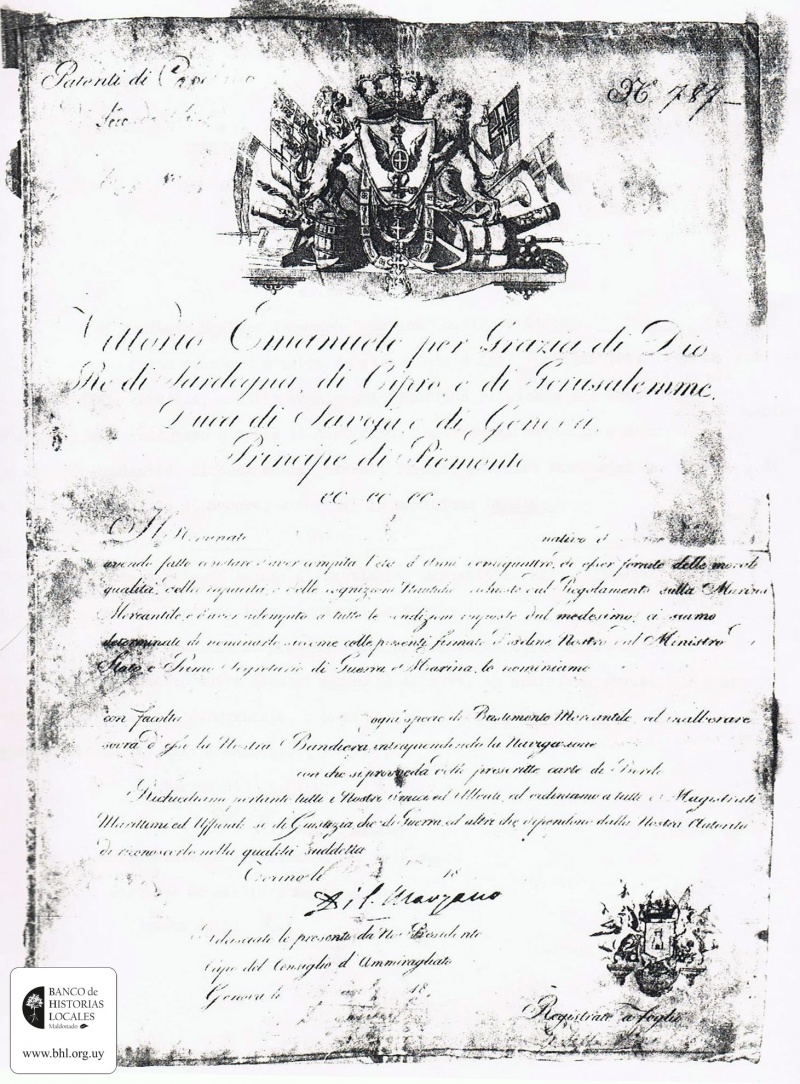 Patenti di
Nº 787
Vittorio Emanuele per Grazia di Dio
Re di Sardegna, di Cipro, e di Gerusalemme,
Duca di Savoja, e di Genova,
Principe di Piemonte
ec ec ec
nativo d
avendo fatto constare d'aver compita l'età d'Anni ventiquattro, di esser fornito delle morali
qualità, della capacità, e delle cognizioni Nautiche richieste dal Regolamento sulla Marina
Mercantile, e d'aver adempito a tutte le condizioni imposte dal medesimo, ci siamo
determinati di nominarlo, siccome colle presenti, firmate d'ordine Nostro dal Ministro
Stato e Primo Segretario di Guerra e Marina, lo nominiamo
con facoltà ogni specie di Bastimento Mercantile, ed inalberare
sovra d' essi la Nostra Bandiera, intraprendendo la Navigazione
con che si provveda delle prescritte carte di Bordo
Richiediamo pertanto tutti i Nostri Amici ed Alleati, ed ordiniamo a tutti i Magistrati
Marittimi, ed Uffiziali sì di Giustizia, che di Guerra, ed altri che dipendono dalla Nostra Autorità
di riconoscerlo nella qualità suddetta
Torino li 18
Di S. Marzano
Rilasciate le presenti da Noi Presidente
Capo del Consiglio d'Ammiragliato
Genova li 18
Registrato a foglio
BANCO de
HISTORIAS
LOCALES
Maldonado
www.bhl.org.uy